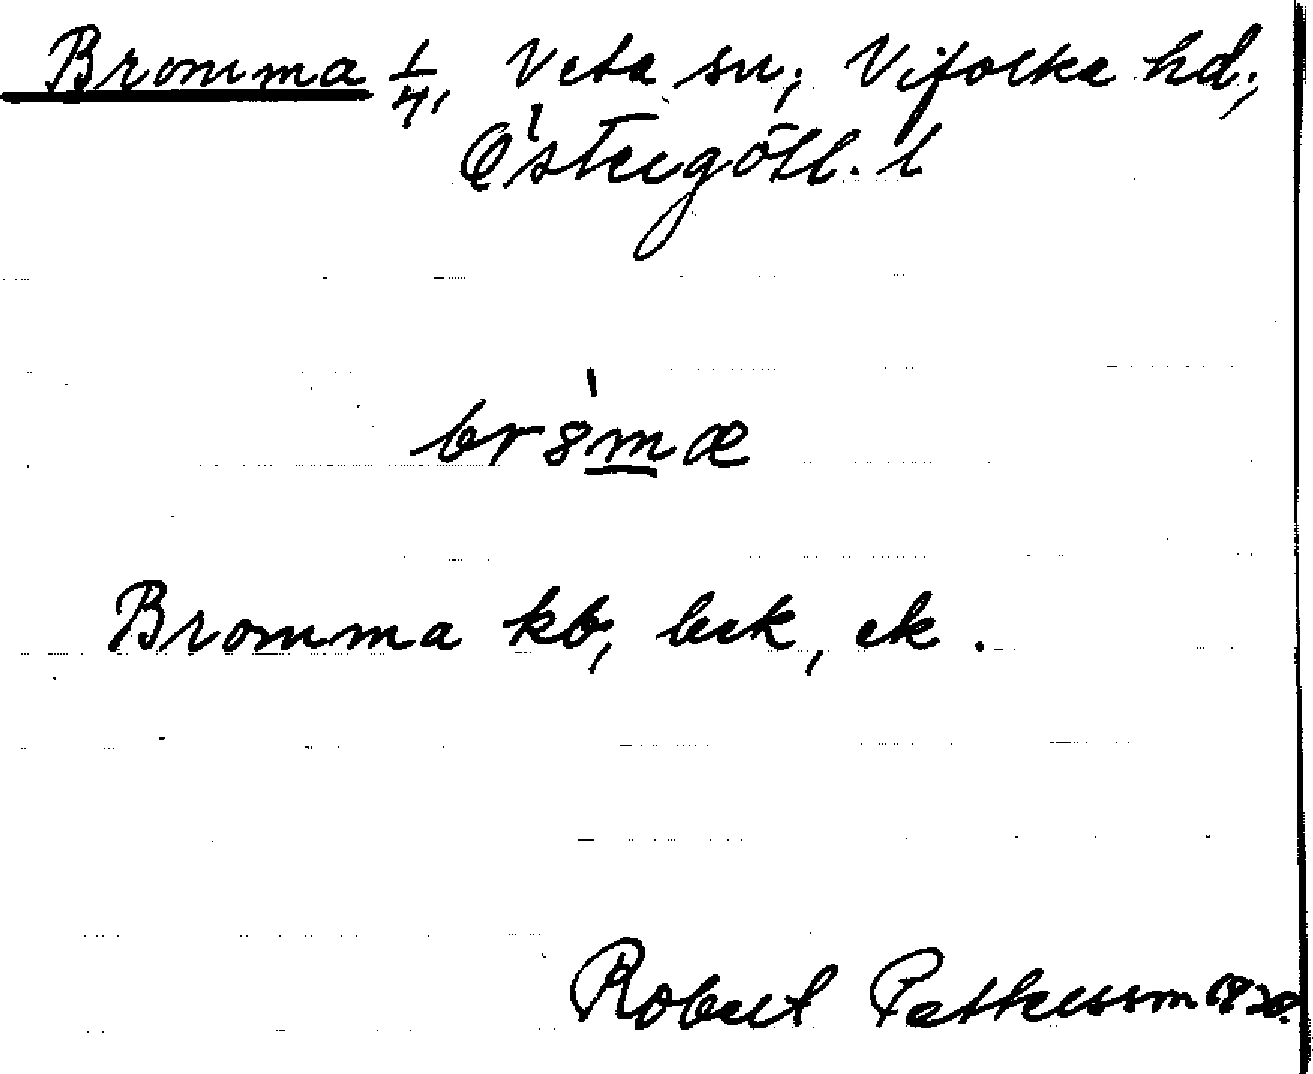 Bromma 1/4, Veta sn, Vifolka hd,
Östergötl. l
br8̀mæ
Bromma kb, bek, ek.
Robert Pettersson